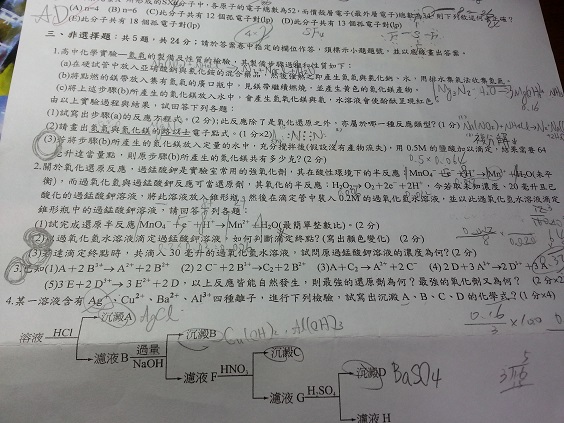 (A) n=4 (B) n=6 (C)此分子共有 12 個孤電子對(lp) (D)此分子共有 13 個孤電子對(lp)
(E)此分子共有 18 個孤電子對(lp)
AD
三、非選擇題：共 5 題，共 24 分；請於答案卷中指定的欄位作答，須標示小題題號，並以底線畫出答案。
(a)在硬試管中放入亞硝酸鈉與氯化銨的混合藥品，然後強熱之即產生氮氣與氯化鈉、水，用排水集氣法收集氮氣。
(b)將點燃的鎂帶放入集有氮氣的廣口瓶中，見鎂帶繼續燃燒，並產生黃色的氮化鎂產物。
(c)將上述步驟(b)所產生的氮化鎂放入水中，會產生氫氧化鎂與氨，水溶液會使酚酞呈現紅色。
由以上實驗過程與結果，試回答下列各題：
(1)試寫出步驟(a)的反應方程式。(2 分)；此反應除了是氧化還原之外，亦屬於哪一種反應類型？(1 分)
(2)請畫出氮氣與氮化鎂的路以士電子點式。(1 分×2)
(3)若將步驟(b)所產生的氮化鎂放入定量的水中，充分攪拌後(假設沒有產物流失)，用 0.5M 的鹽酸加以滴定，結果需要 64
毫升達當量點，則原步驟(b)所產生的氮化鎂共有多少克？(2 分)
2.關於氧化還原反應，過錳酸鉀是實驗室常用的強氧化劑，其在酸性環境下的半反應：MnO₄⁻ + e⁻ + H⁺ → Mn²⁺ + H₂O(未平
衡)，而過氧化氫與過錳酸鉀反應下當還原劑，其氧化的半反應：H₂O₂→ O₂＋2e⁻＋2H⁺。今若取未知濃度、20 毫升且已
酸化的過錳酸鉀溶液，將此溶液放入錐形瓶，然後在滴定管中裝入 0.2M 的過氧化氫水溶液，並以此過氧化氫水溶液滴定
錐形瓶中的過錳酸鉀溶液，請回答下列各題：
(1)試完成還原半反應 MnO₄⁻ + e⁻ + H⁺→ Mn²⁺ + H₂O(最簡單整數比)。(2 分)
(2)以過氧化氫水溶液滴定過錳酸鉀溶液，如何判斷滴定終點？(寫出顏色變化) (2 分)
(3)若達滴定終點時，共滴入 30 毫升的過氧化氫水溶液，試問原過錳酸鉀溶液的濃度為何？(2 分)
3.已知(1)A＋2 B³⁺→A²⁺＋2 B²⁺ (2) 2 C⁻＋2 B³⁺→C₂＋2 B²⁺ (3)A＋C₂→A²⁺＋2 C⁻ (4) 2 D＋3 A²⁺→2 D³⁺＋3 A
(5)3 E＋2 D³⁺→3 E²⁺＋2 D，以上反應皆能自然發生，則最強的還原劑為何？最強的氧化劑又為何？ (2 分×2)
4.某一溶液含有 Ag⁺、Cu²⁺、Ba²⁺、Al³⁺四種離子，進行下列檢驗，試寫出沉澱 A、B、C、D 的化學式？(1 分×4)
沉澱A AgCl
溶液 HCl
濾液 B 過量 NaOH
沉澱B
濾液 F HNO₃
沉澱C
濾液 G H₂SO₄
沉澱D BaSO4
濾液 H